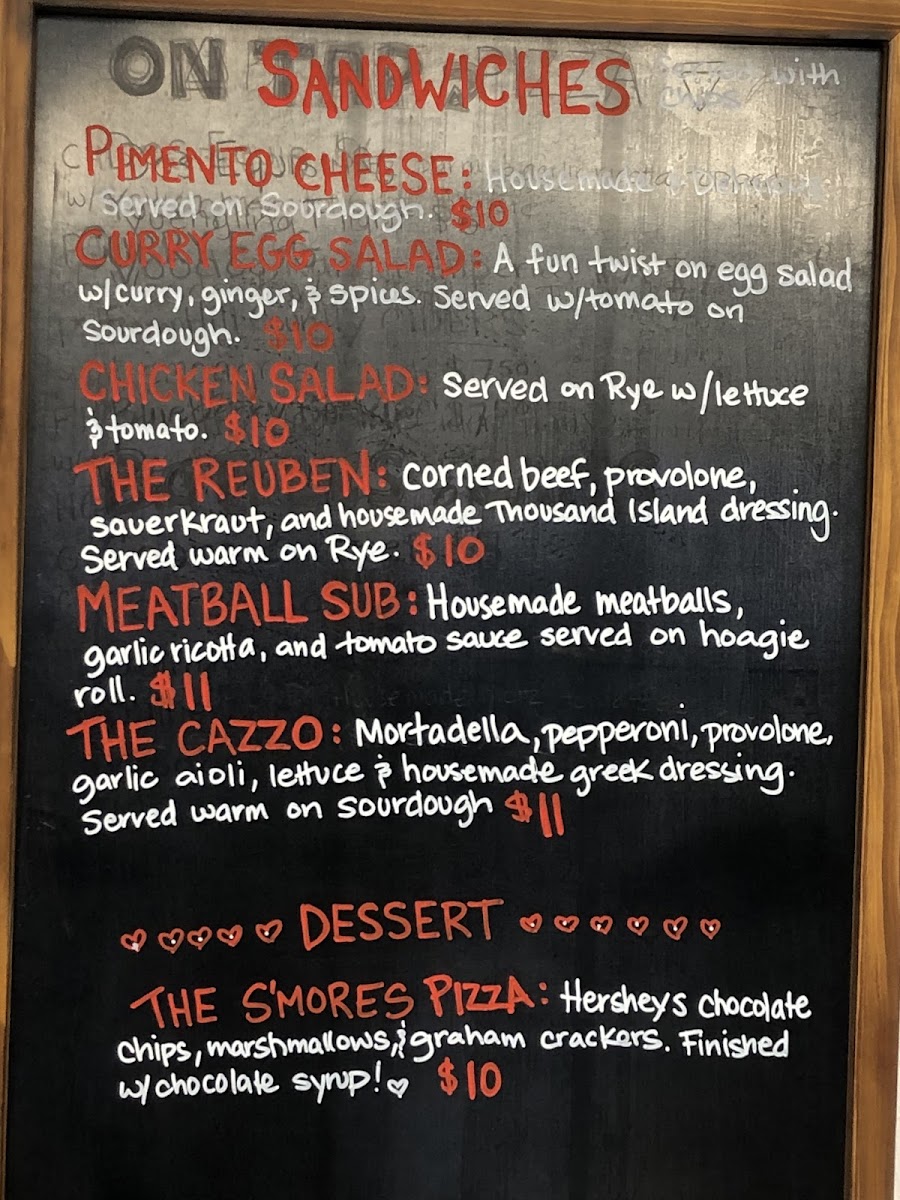 ON SANDWICHES with
PIMENTO CHEESE: Housemade
Served on Sourdough. $10
CURRY EGG SALAD: A fun twist on egg salad
w/curry, ginger, & spices. Served w/tomato on
Sourdough. $10
CHICKEN SALAD: Served on Rye w/lettuce
& tomato. $10
THE REUBEN: corned beef, provolone,
sauerkraut, and housemade Thousand Island dressing.
Served warm on Rye. $10
MEATBALL SUB: Housemade meatballs,
garlic ricotta, and tomato sauce served on hoagie
roll. $11
THE CAZZO: Mortadella, pepperoni, provolone,
garlic aioli, lettuce & housemade greek dressing.
Served warm on sourdough $11
DESSERT
THE S'MORES PIZZA: Hersheys chocolate
chips, marshmallows, & graham crackers. Finished
w/chocolate syrup! $10